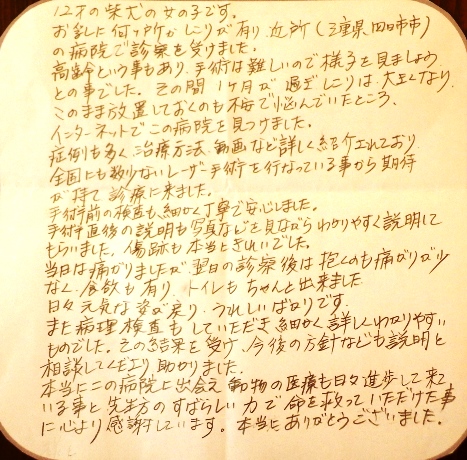 12才の柴犬の女の子です。
お乳に何ヶ所かしこりが有り、近所(三重県四日市市)
の病院で診察を受けました。
高齢という事もあり、手術は難しいので様子を見ましょう
との事でした。その間1ヶ月が過ぎしこりは大きくなり、
このまま放置しておくのも不安で悩んでいたところ、
インターネットでこの病院を見つけました。
症例も多く、治療方法、動画など詳しく紹介されており
全国にも数少ないレーザー手術を行なっている事から期待
が持て診療に来ました。
手術前の検査も細かく丁寧で安心しました。
手術直後の説明も写真などを見ながらわかりやすく説明して
もらいました。傷跡も本当にきれいでした。
当日は痛がりましたが、翌日の診察後は抱くのも痛がりが少
なく、食欲も有り、トイレもちゃんと出来ました。
日々元気な姿が戻り、うれしいばかりです。
また病理検査もしていただき細かく詳しくわかりやすい
ものでした。その結果を受け、今後の方針なども説明と
相談してくださり、助かりました。
本当にこの病院に出会え動物の医療も日々進歩して来て
いる事と先生方のすばらしい力で命を救っていただけた事
に心より感謝しています。本当にありがとうございました。